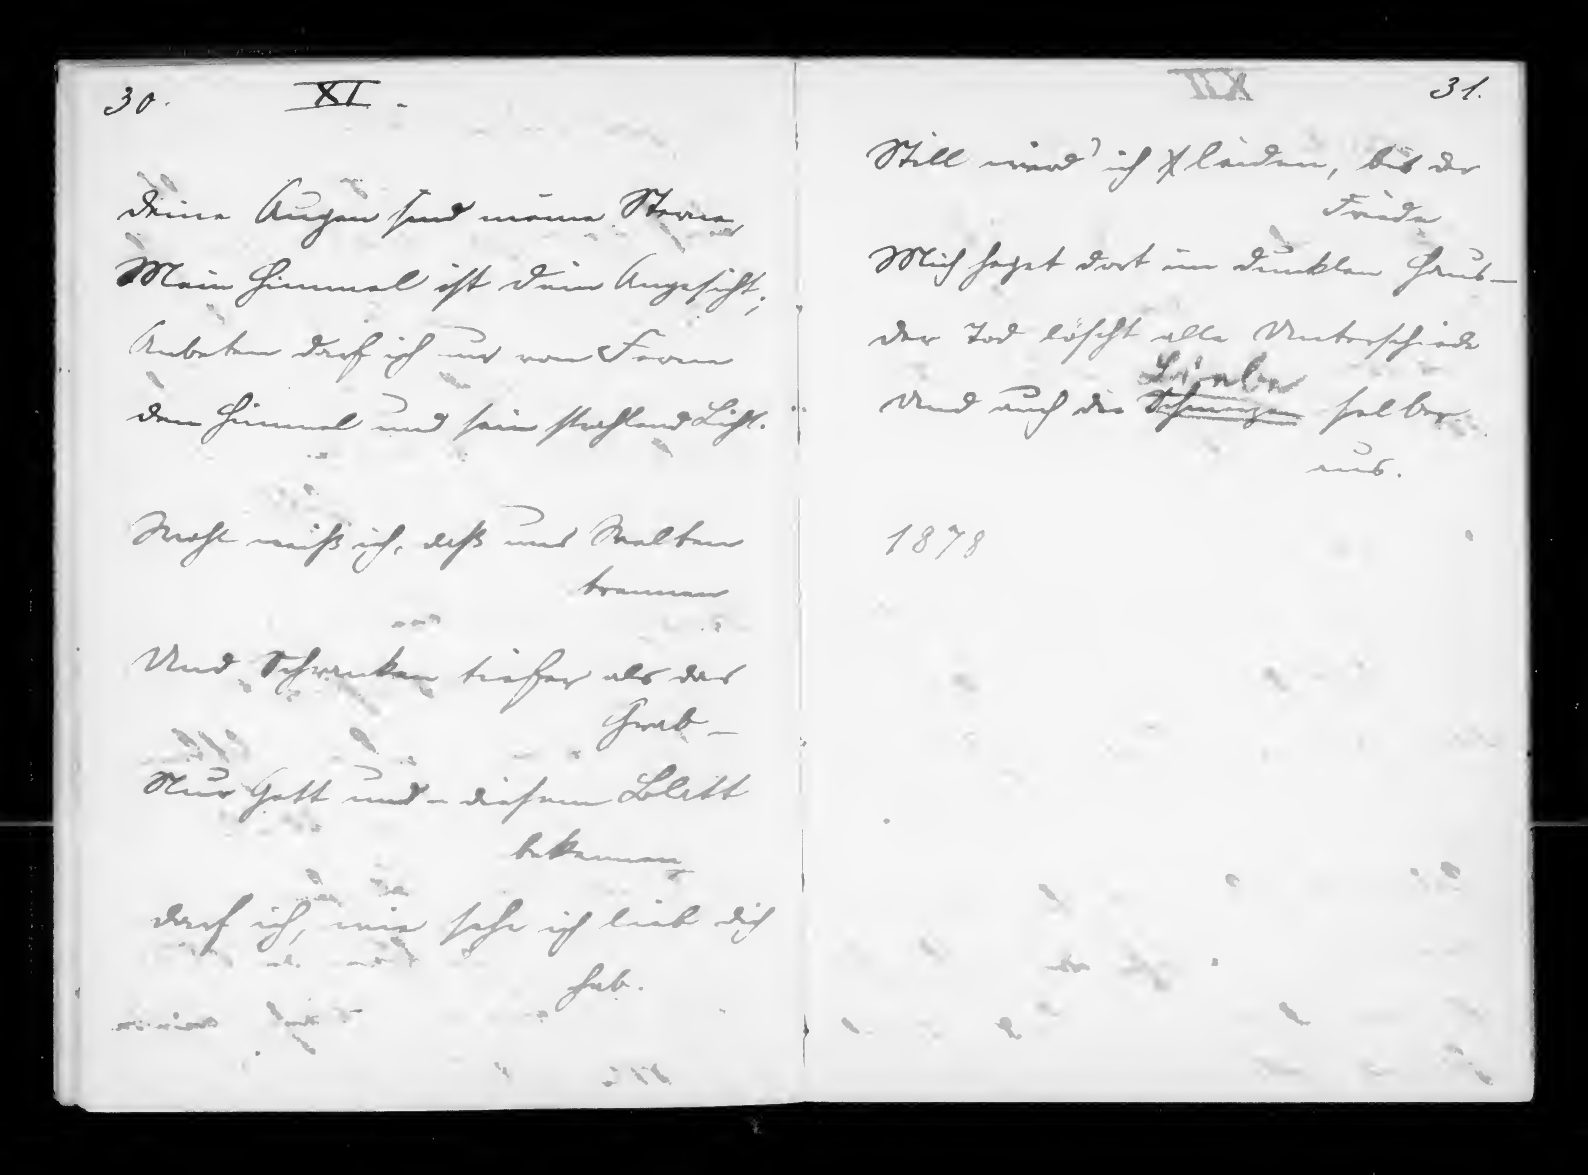 30. XI.
Deine Augen sind meine Sterne,
Mein Himmel ist dein Angesicht,
Anbeten darf ich nur von Ferne
den Himmel und sein strahlend Licht.
Wohl weiß ich, daß uns Welten
trennen
Und Schranken tiefer als das
Grab –
Nur Gott und – diesem Blatt
bekennen,
darf ich, wie sehr ich lieb dich
hab.
31.
Still werd' ich leiden, bis der
Friede
Mich heget dort im dunklen Haus –
der Tod löscht alle Unterschiede
Und auch die Schmerzen selber
Liebe
aus.
1878